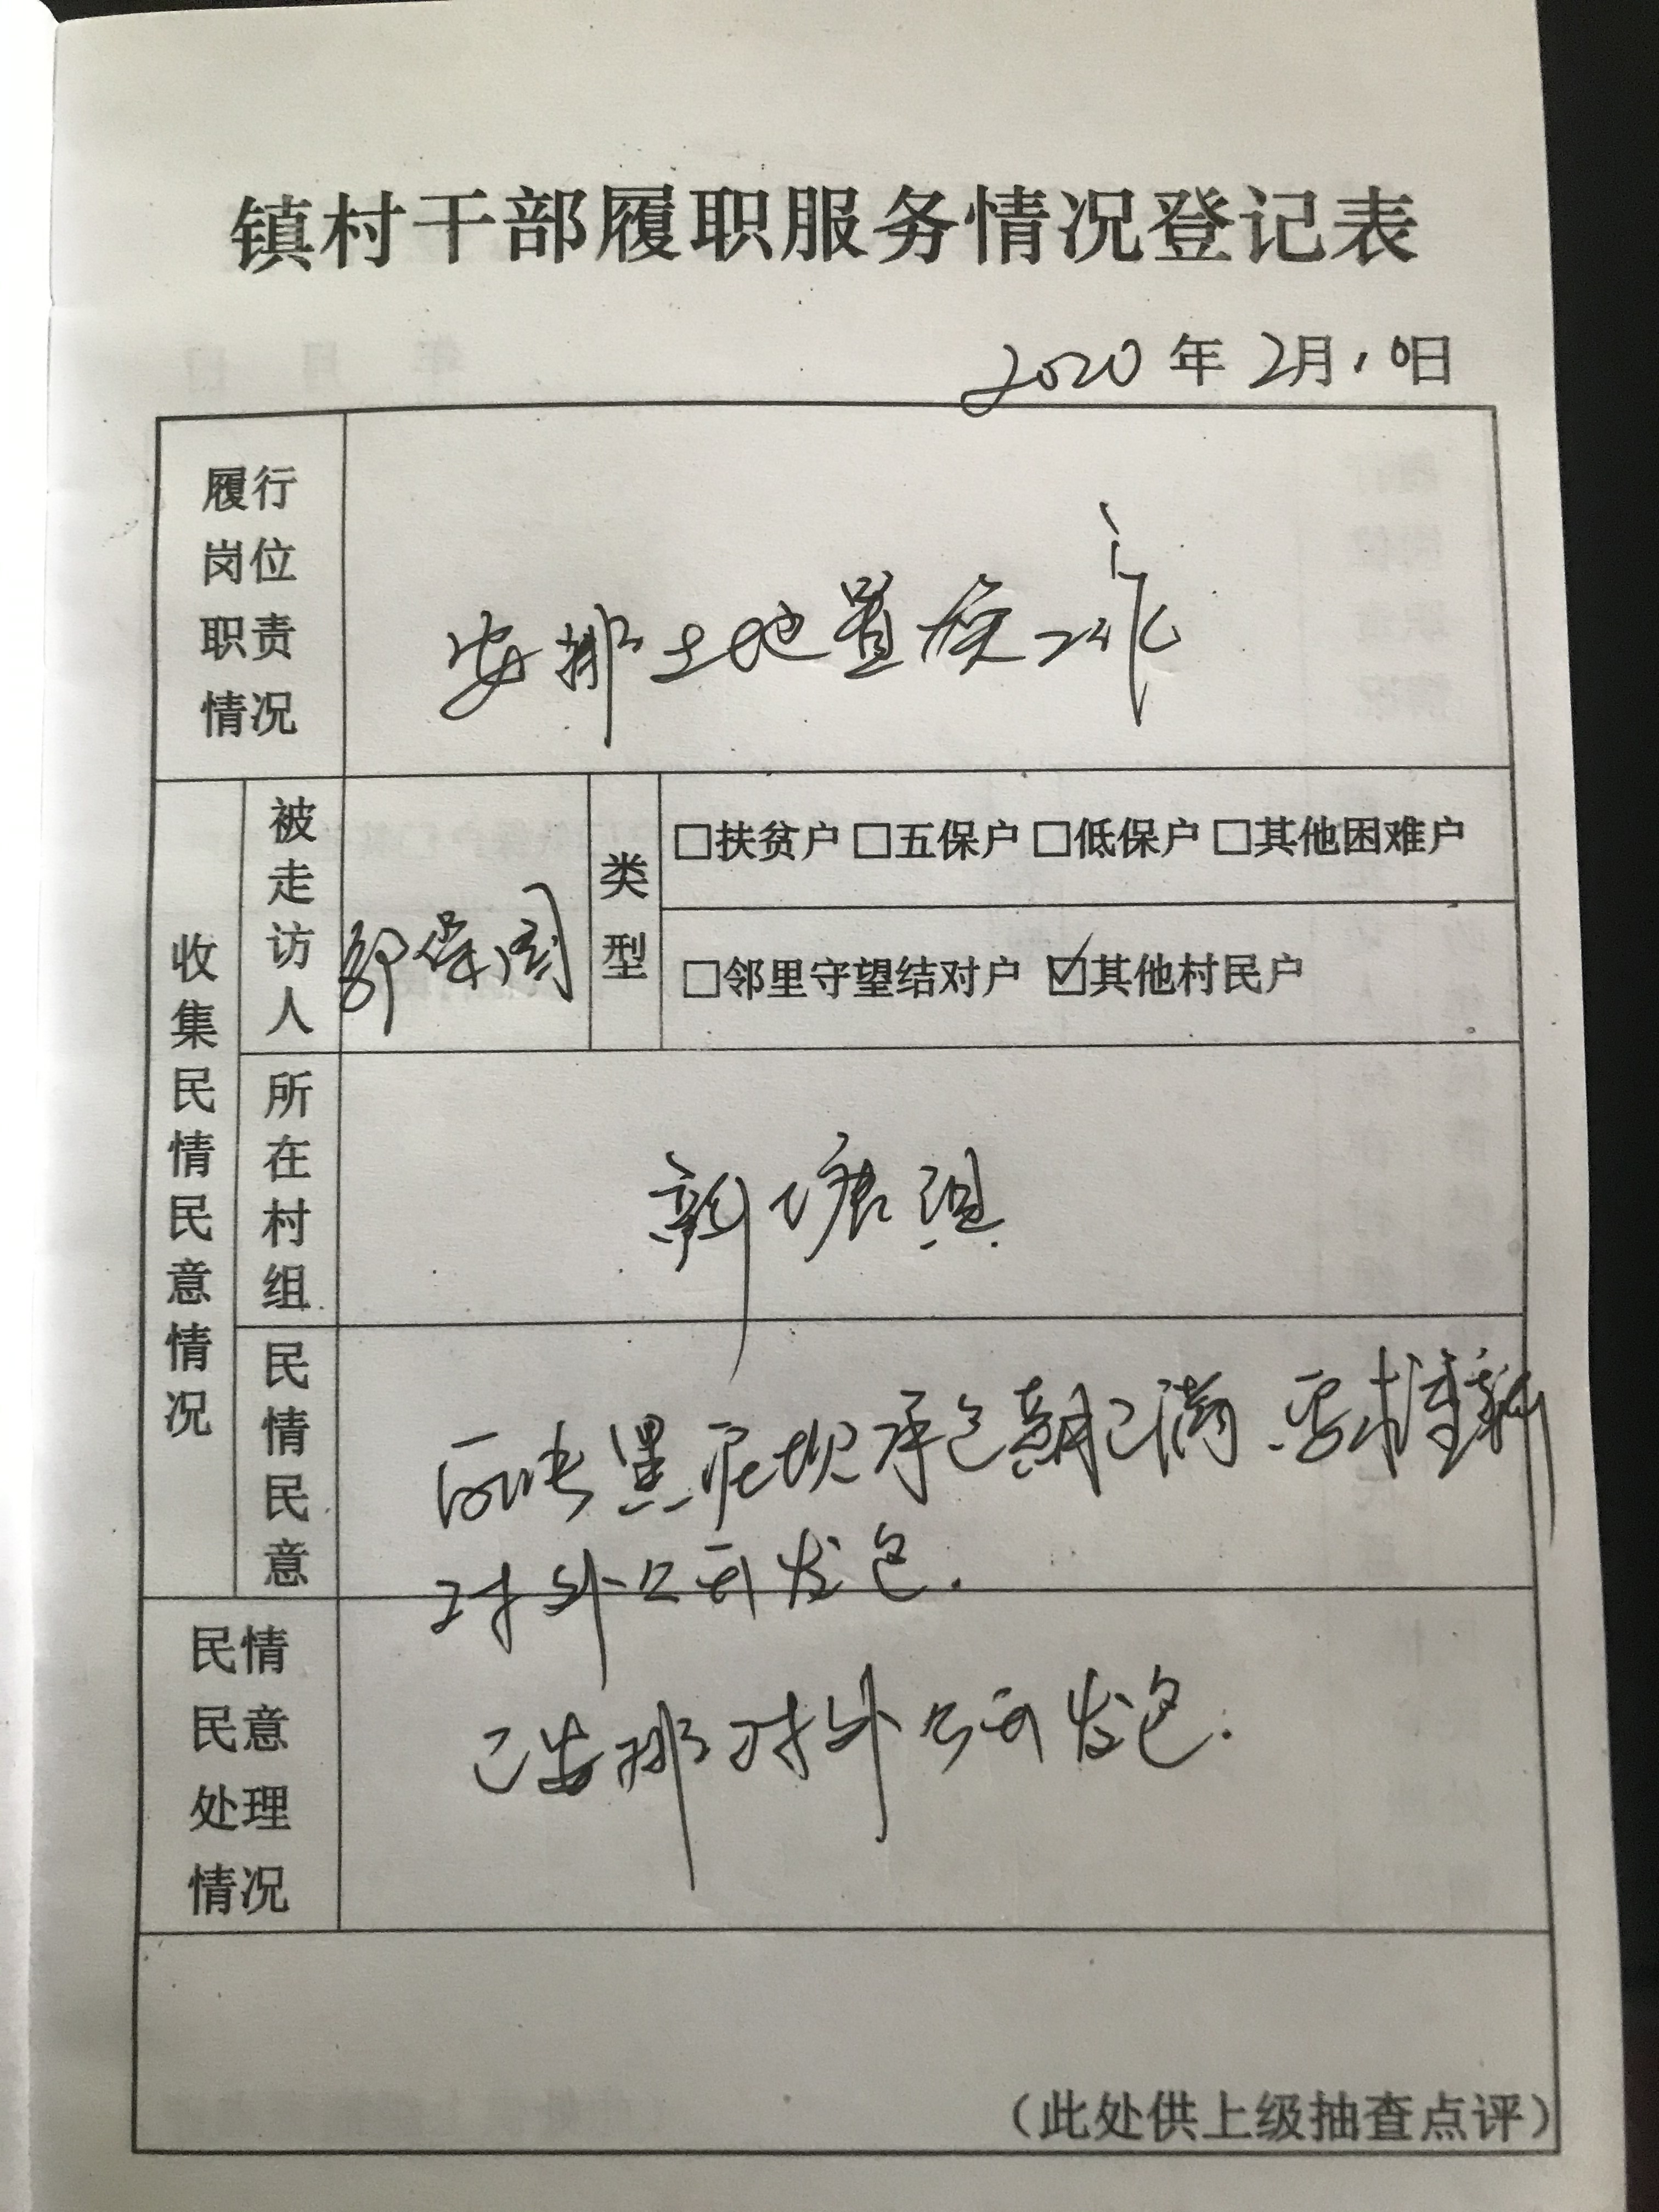 镇村干部履职服务情况登记表
2020年2月10日
履行岗位职责情况
安排土地置换工作
收集民情民意情况
被走访人
保
类型
□扶贫户 □五保户 □低保户 □其他困难户
□邻里守望结对户 ☑其他村民户
所在村组
新塘组
民情民意
黑泥坝承包期已满,要求重新
对外公开发包.
民情民意处理情况
已安排对外公开发包.
(此处供上级抽查点评)